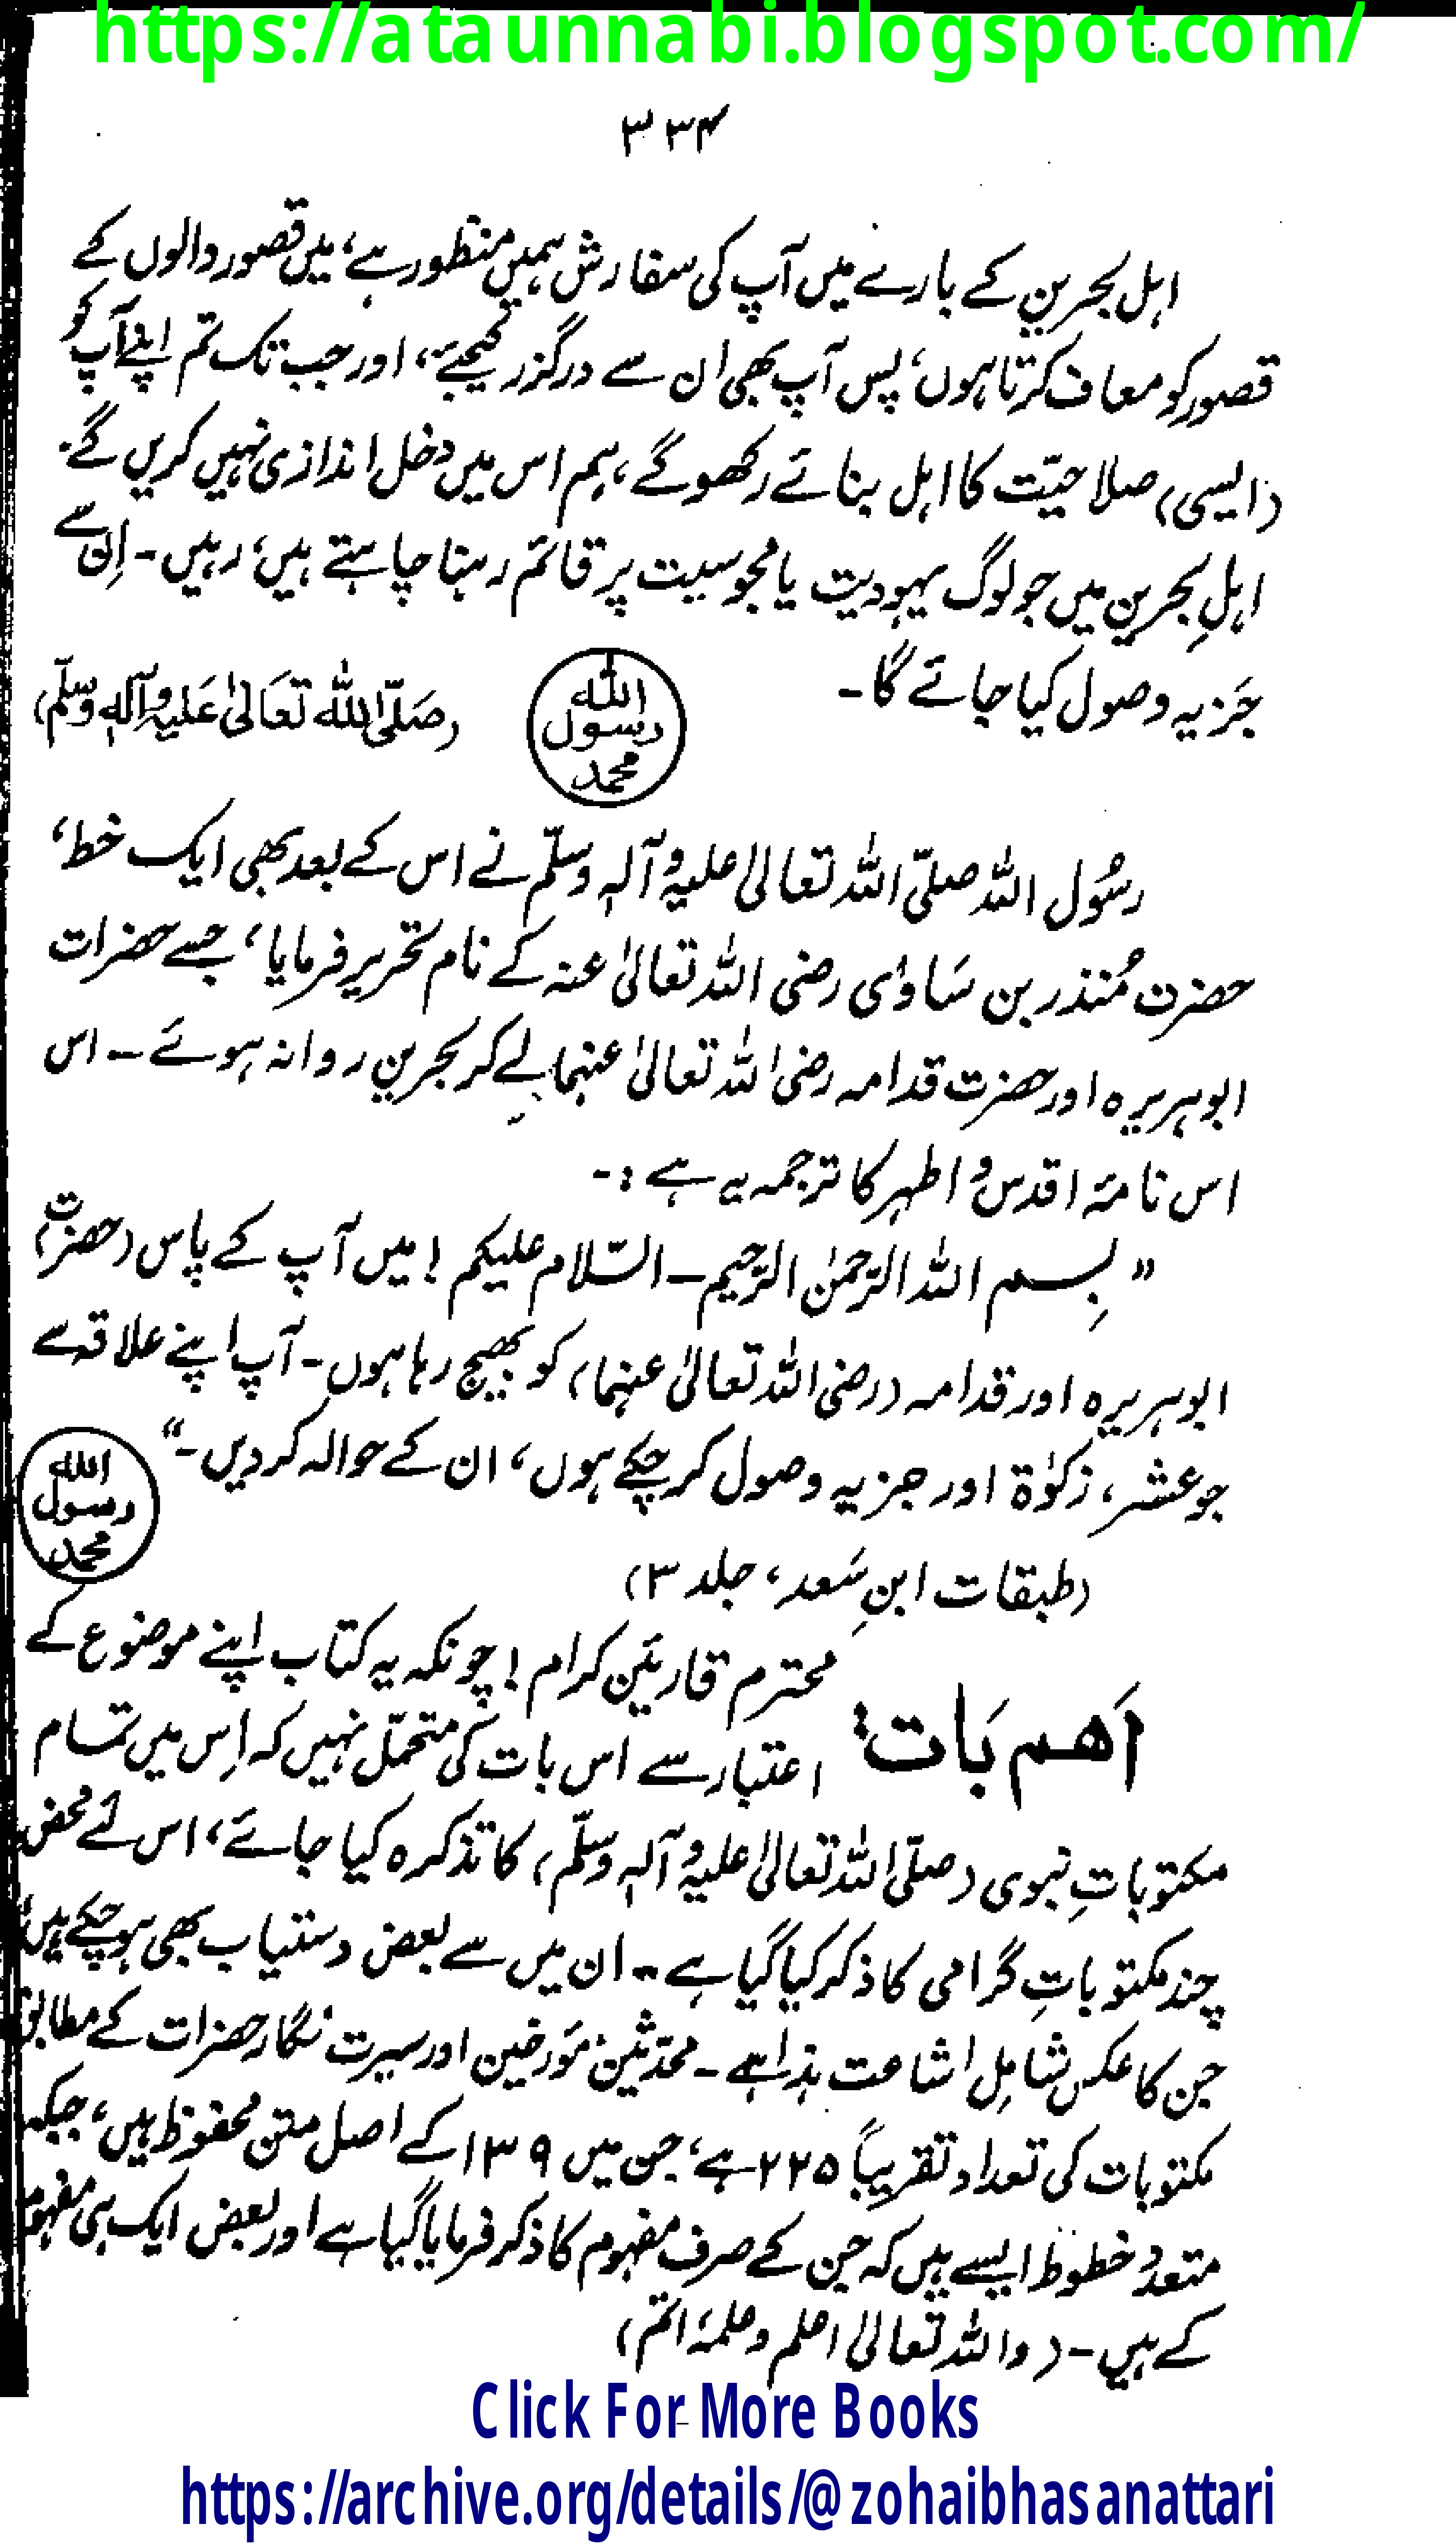 https://ataunnabi.blogspot.com/
۳۳۴
اہل بحرین کے بارے میں آپ کی سفارش ہمیں منظور ہے، میں قصور والوں کے
قصور کو معاف کرتا ہوں، پس آپ بھی ان سے درگزر کیجیے، اور جب تک تم اپنے آپ کو
(ایسی) صلاحیّت کا اہل بنائے رکھو گے، ہم اس میں دخل اندازی نہیں کریں گے۔
اہلِ بحرین میں جو لوگ یہودیت یا مجوسیت پر قائم رہنا چاہتے ہیں، رہیں۔ اِن سے
جَزیہ وصول کیا جائے گا۔
اللہ
رسول
محمد
(صَلَّی اللہ تَعَالٰی عَلَیْہِ وَآلِہٖ وَسَلَّم)
رسُول اللہ صلّی اللہ تعالیٰ علیہ وآلہٖ وسلّم نے اس کے بعد بھی ایک خط،
حضرت مُنذر بن سَاوٰی رضی اللہ تعالیٰ عنہ کے نام تحریر فرمایا، جسے حضرات
ابوہریرہ اور حضرت قدامہ رضی اللہ تعالیٰ عنہما لے کر بحرین روانہ ہوئے۔ اس
اس نامۂ اقدس و اطہر کا ترجمہ یہ ہے :-
"بِسم اللہ الرّحمٰن الرّحیم — السّلام علیکم! میں آپ کے پاس (حضرت)
ابوہریرہ اور قدامہ (رضی اللہ تعالیٰ عنہما) کو بھیج رہا ہوں۔ آپ اپنے علاقہ سے
جو عشر، زکوٰۃ اور جزیہ وصول کر چکے ہوں، ان کے حوالہ کر دیں۔"
اللہ
رسول
محمد
(طبقات ابنِ سَعد، جلد ۳)
اَہم بَات:
محترم قارئین کرام! چونکہ یہ کتاب اپنے موضوع کے
اعتبار سے اس بات کی متحمّل نہیں کہ اِس میں تمام
مکتوباتِ نبوی (صلّی اللہ تعالیٰ علیہ وآلہٖ وسلّم) کا تذکرہ کیا جائے، اس لئے محض
چند مکتوباتِ گرامی کا ذکر کیا گیا ہے۔ ان میں سے بعض دستیاب بھی ہو چکے ہیں،
جن کا عکس شامِل اشاعت ہذا ہے۔ محدّثین، مؤرخین اور سیرت نگار حضرات کے مطابق
مکتوبات کی تعداد تقریباً ۲۲۵ ہے، جن میں ۱۳۹ کے اصل متن محفوظ ہیں، جبکہ
متعدد خطوط ایسے ہیں کہ جن کے صرف مفہوم کا ذکر فرمایا گیا ہے اور بعض ایک ہی مفہوم
کے ہیں۔ (واللہ تعالیٰ اعلم وعلمہٗ اتم)
Click For More Books
https://archive.org/details/@zohaibhasanattari